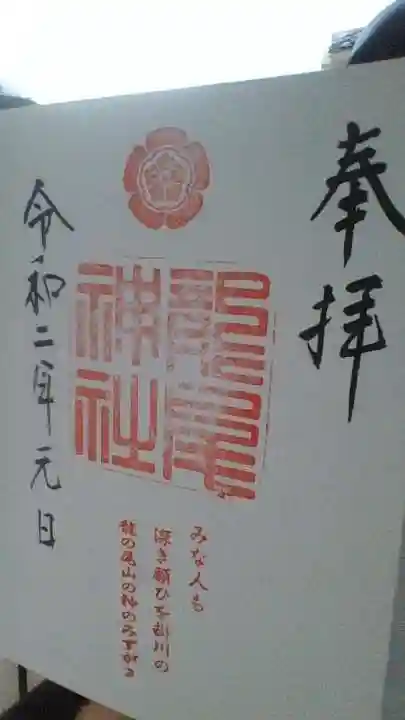 奉拝
龍尾
神社
みな人も
深き願ひを掛川の
龍の尾山の神のみすがた
令和二年元日